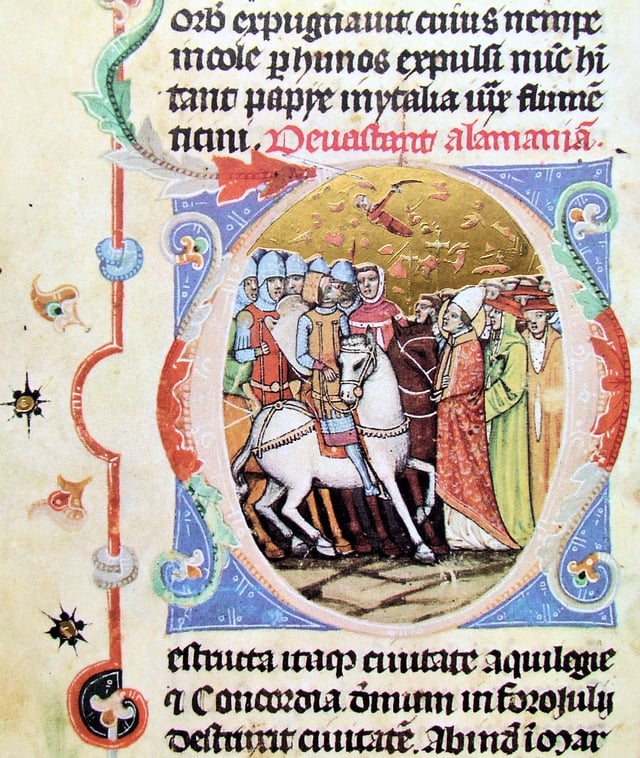 orb̄ expugnauit. cuius nempe
incole ꝑ hunos expulsi nūc hī
tant papye in ytalia iux̄ flumē
ticini. Deuastant alamaniā.
estructa itaqꝫ ciuitate aquilegie
⁊ Concordia. d̄mum in foroJulij
destruxit ciuitatē. Abind̄ ī Mar